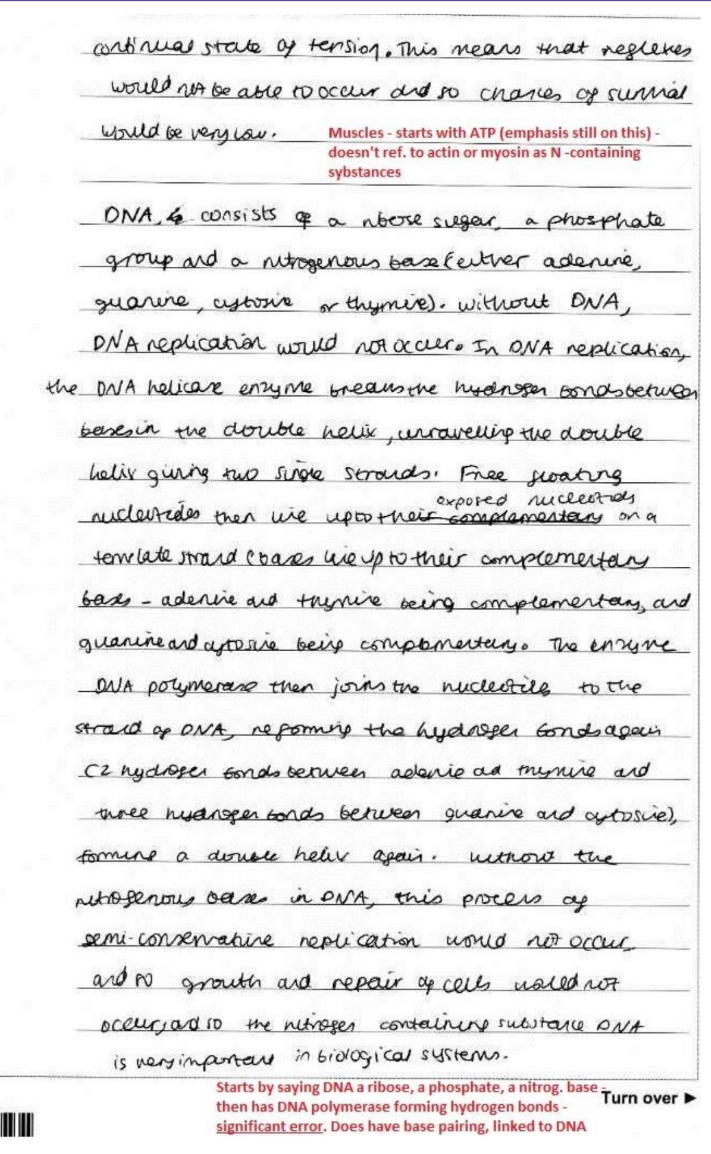 continual state of tension. This means that reflexes
would not be able to occur and so chances of survival
would be very low.
Muscles - starts with ATP (emphasis still on this) -
doesn't ref. to actin or myosin as N -containing
sybstances
DNA, consists of a ribose sugar, a phosphate
group and a nitrogenous base (either adenine,
guanine, cytosine or thymine). Without DNA,
DNA replication would not occur. In DNA replication,
the DNA helicase enzyme breaks the hydrogen bonds between
bases in the double helix, unravelling the double
helix giving two single strands. Free floating
exposed nucleotides
nucleotides then line up to their complementary on a
template strand (bases line up to their complementary
bases - adenine and thymine being complementary, and
guanine and cytosine being complementary. The enzyme
DNA polymerase then joins the nucleotides to the
strand of DNA, reforming the hydrogen bonds again
(2 hydrogen bonds between adenine ad thymine and
three hydrogen bonds between guanine and cytosine),
forming a double helix again. Without the
nitrogenous bases in DNA, this process of
semi-conservative replication would not occur
and so growth and repair of cells would not
occur, and so the nitrogen containing substance DNA
is very important in biological systems.
Starts by saying DNA a ribose, a phosphate, a nitrog. base -
then has DNA polymerase forming hydrogen bonds -
significant error. Does have base pairing, linked to DNA
Turn over ►